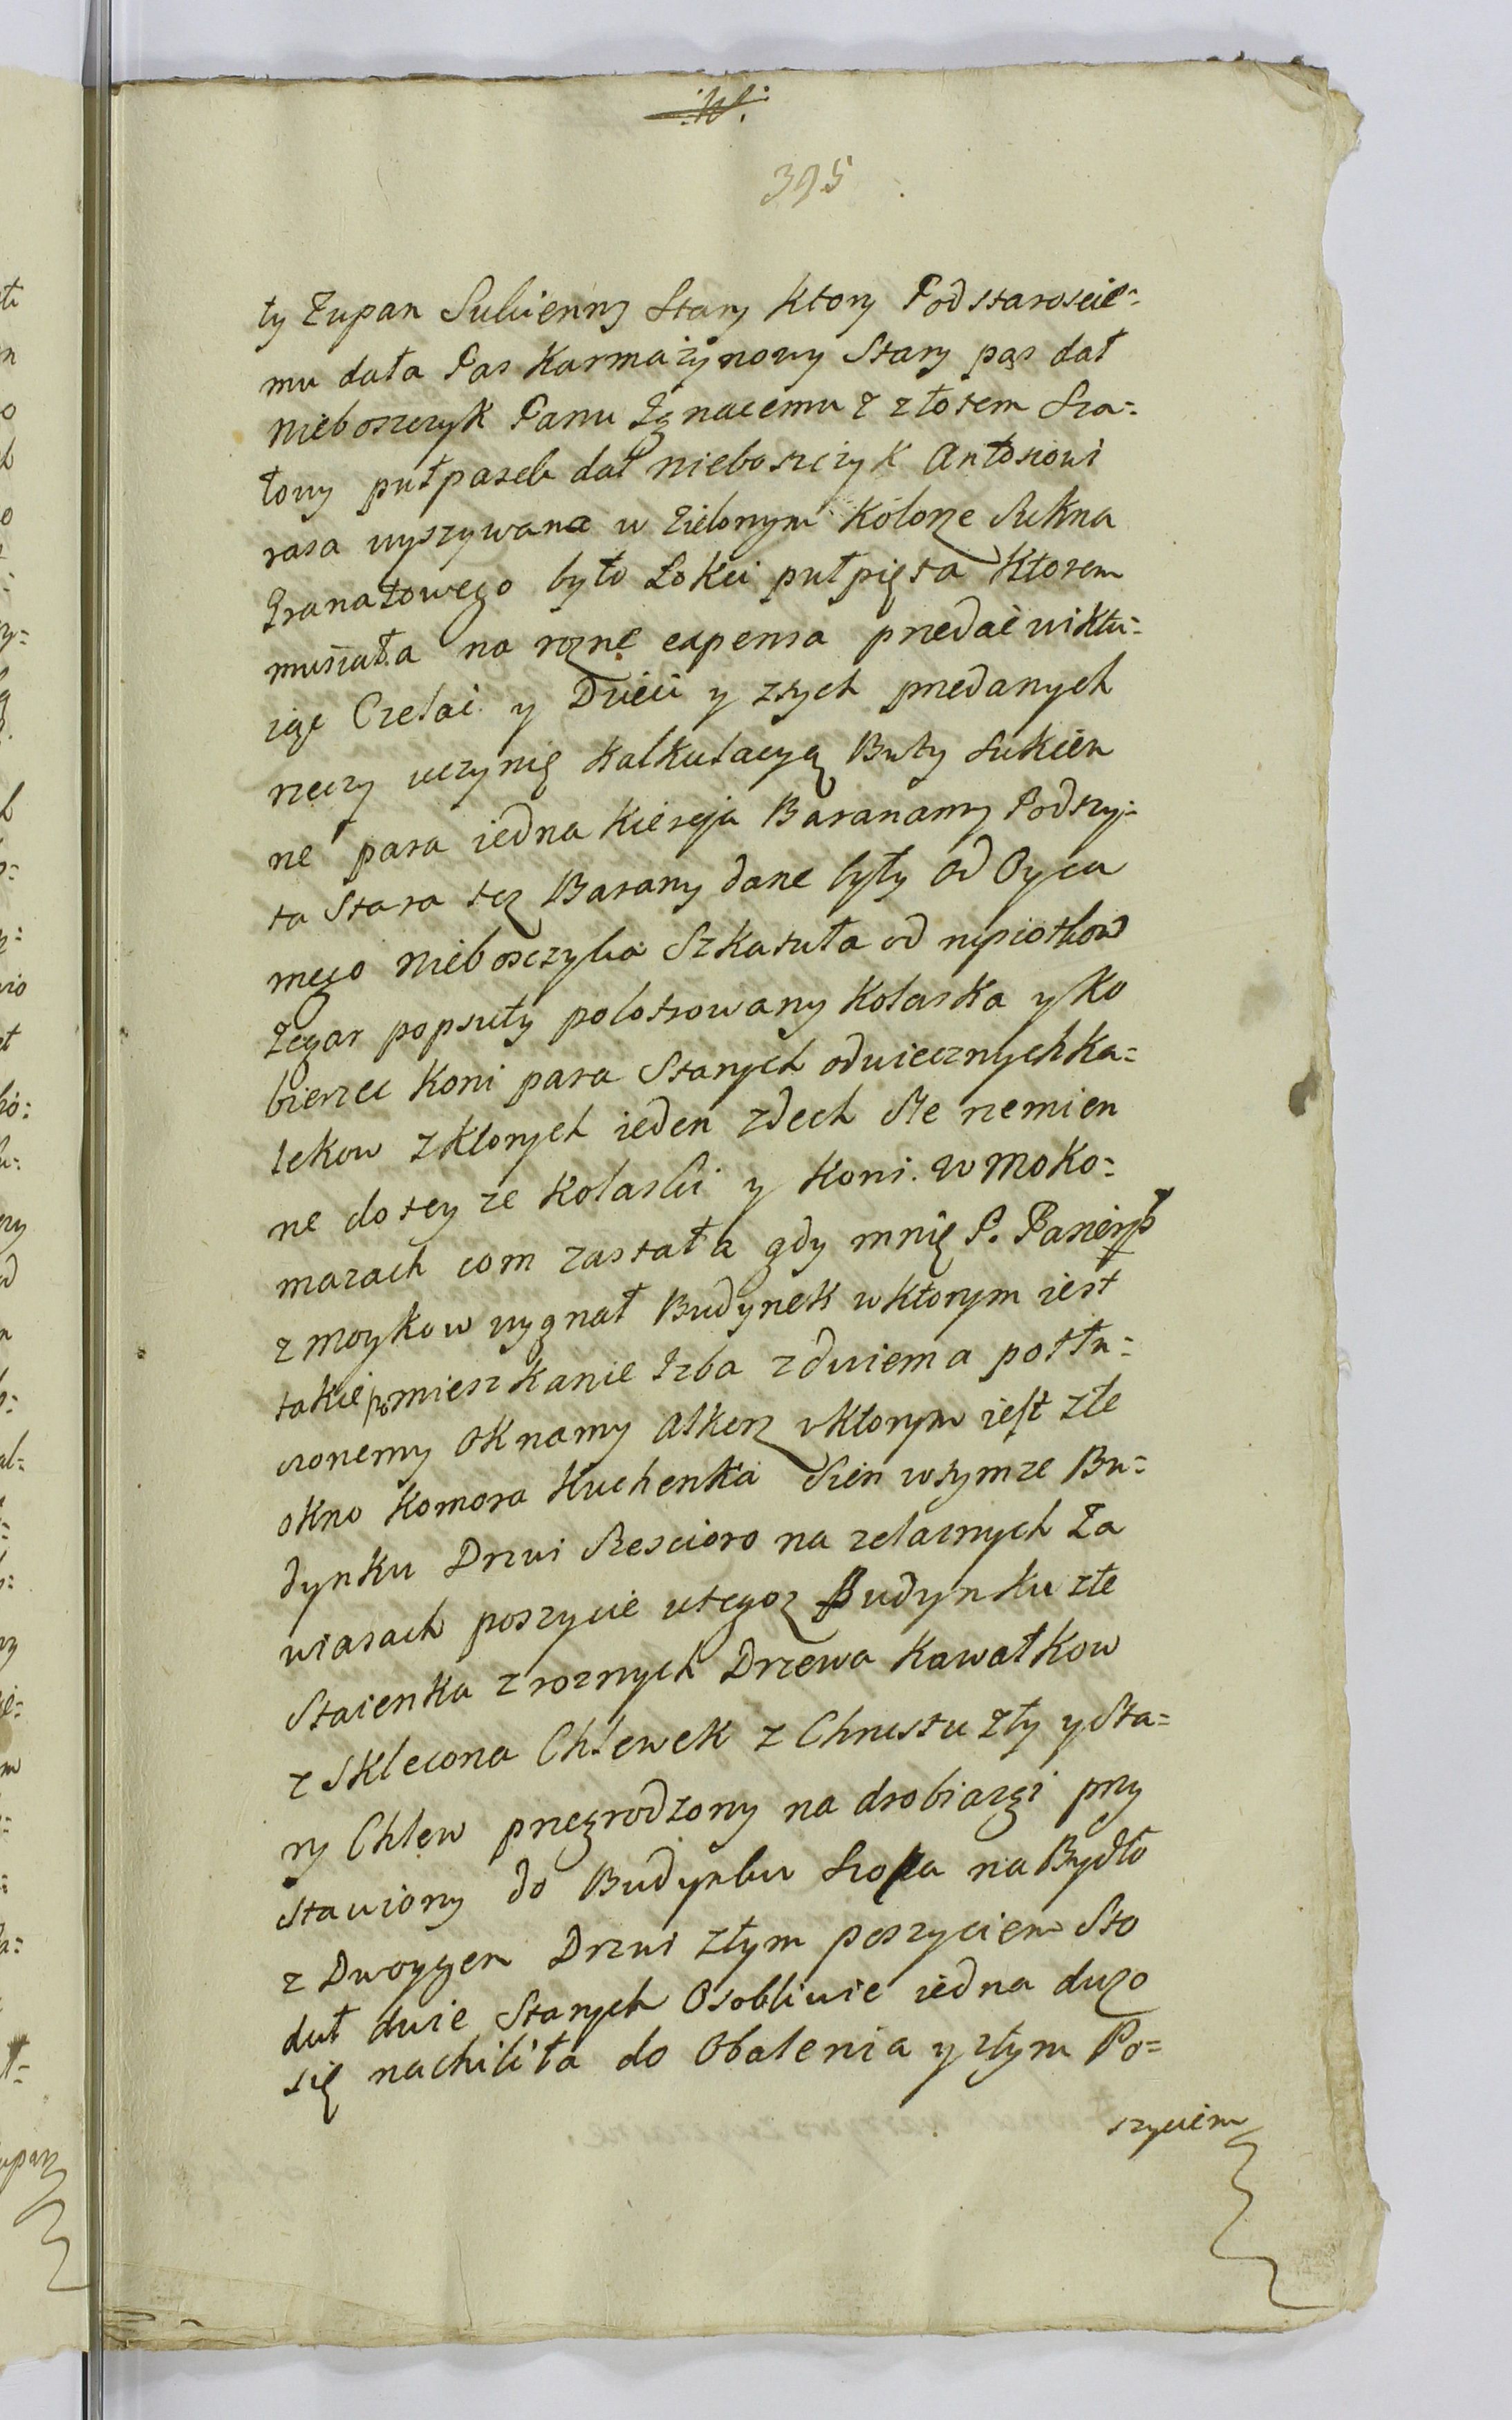 395
ty Zupan Sukienny Stary ktory Podstaroscie=
mu dała Pas Karmazynowy Stary pas dał
nieboszczyk Panu Ignacemu z złotem Sza=
towy pułpasek dał nieboszczyk Antosiowi
rasa wyszywana w Zielonym Kolorze Sukna
Granatowego było Łokci pułpięta Ktorem
musiała na rozne expensa przedać wiktu=
iąc Czeladz y Dzieci y z tych przedanych
rzeczy uczynię Kalkulacyą Buty sukien
ne para iedna Kiereja Baranamy Podszy=
ta Stara tez Barany dane były od Oyca
mego nieboszczyka Szkatuła od
Zegar popsuty polotrowany Kolaska y Ko
bierzec Koni para Starych odwiecznych ka=
lekow z Ktorych ieden zdech Sle rzemien
ne do tey ze Kolaski y Koni. w Moko=
marach com zastała gdy mnię P.
z Moykow wygnał Budynek w ktorym iest
takie pomieszkanie Izba z dwiema potłu=
czonemy Oknamy Alkierz w Ktorym iest złe
okno Komora Kuchenka Sien w tym ze Bu=
dynku Drzwi Szescioro na zelaznych Za
wiasach poszycie u tegoz Budynku złe
Staienka z roznych Drzewa Kawałkow
z Sklecona Chlewek z Chrustu zły y Sta=
ry Chlew przegrodzony na drobiazgi przy
stawiony do Budynku Szopa na Bydło
z Dwoygiem Drzwi złym poszyciem Sto
duł dwie Starych Osobliwie iedna duzo
się nachiliła do Obalenia y złym Po=
szyciem